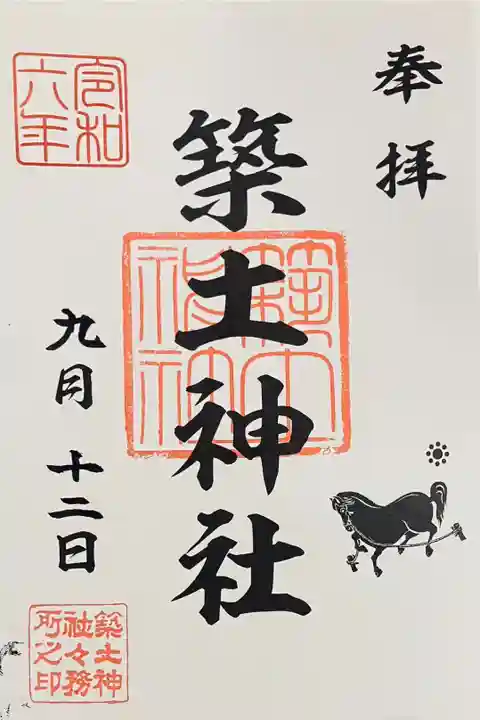 奉拝
築土神社
築土神社
令和六年
九月十二日
築土神社々務所之印